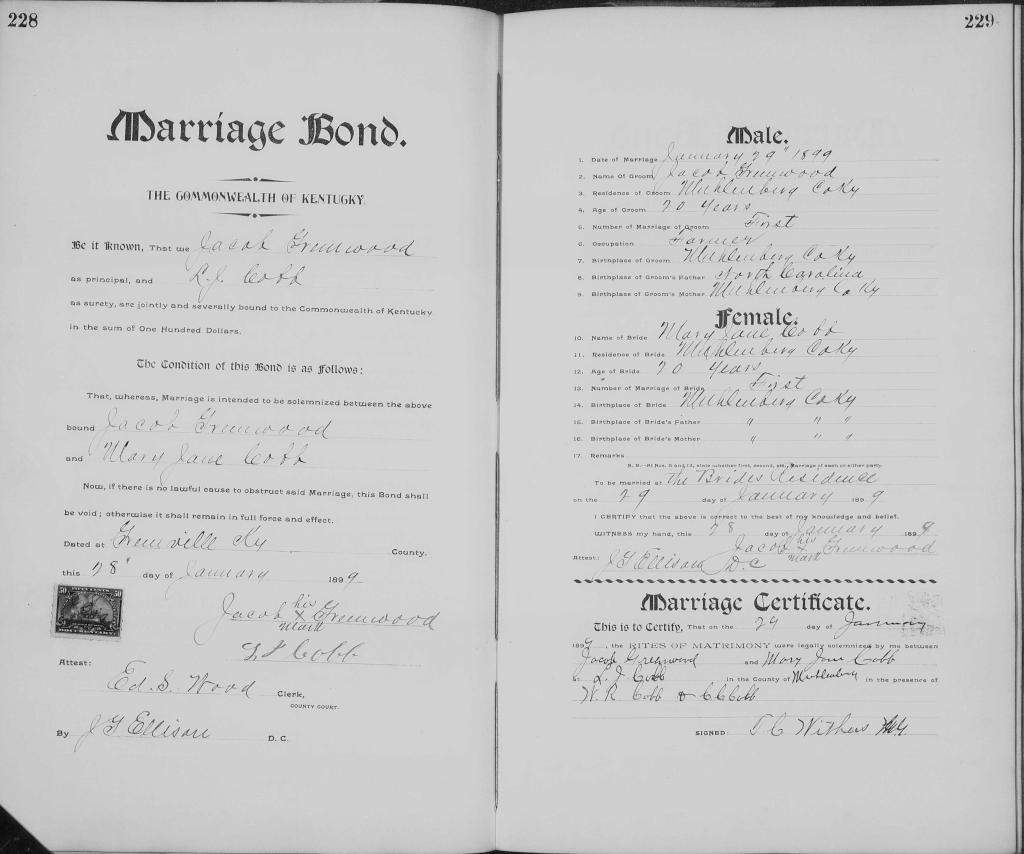 228
Marriage Bond.
THE COMMONWEALTH OF KENTUCKY.
Be it Known, That we Jacob Greenwood
as principal, and L.J. Cobb
as surety, are jointly and severally bound to the Commonwealth of Kentucky
in the sum of One Hundred Dollars.
The Condition of this Bond is as Follows:
That, whereas, Marriage is intended to be solemnized between the above
bound Jacob Greenwood
and Mary Jane Cobb
Now, if there is no lawful cause to obstruct said Marriage, this Bond shall
be void; otherwise it shall remain in full force and effect.
Dated at Greenville Ky County.
this 28" day of January 1899
50 FIFTY CENTS 50
DOCUMENTARY
Jacob his x mark Greenwood
L J Cobb
Attest:
Ed. S. Wood Clerk,
COUNTY COURT.
By J G Ellison D. C.
229
Male.
1. Date of Marriage January 29" 1899
2. Name Of Groom Jacob Greenwood
3. Residence of Groom Muhlenberg Co Ky
4. Age of Groom 20 Years
5. Number of Marriage of Groom First
6. Occupation Farmer
7. Birthplace of Groom Muhlenberg Co Ky
8. Birthplace of Groom's Father North Carolina
9. Birthplace of Groom's Mother Muhlenberg Co Ky
Female.
10. Name of Bride Mary Jane Cobb
11. Residence of Bride Muhlenberg Co Ky
12. Age of Bride 20 Years
13. Number of Marriage of Bride First
14. Birthplace of Bride Muhlenberg Co Ky
15. Birthplace of Bride's Father " " "
16. Birthplace of Bride's Mother " " "
17. Remarks
N. B.—At Nos. 5 and 13, state whether first, second, etc., Marriage of each or either party.
To be married at the Brides Residence
on the 29 day of January 1899
I CERTIFY that the above is correct to the best of my knowledge and belief.
WITNESS my hand, this 28 day of January 1899
Jacob his x mark Greenwood
Attest: J G Ellison D.C
Marriage Certificate.
This is to Certify, That on the 29 day of January
1899, the RITES OF MATRIMONY were legally solemnized by me between
Jacob Greenwood and Mary Jane Cobb
at L. J. Cobb in the County of Muhlenberg in the presence of
W. R. Cobb & C C Cobb
SIGNED: T C Withers